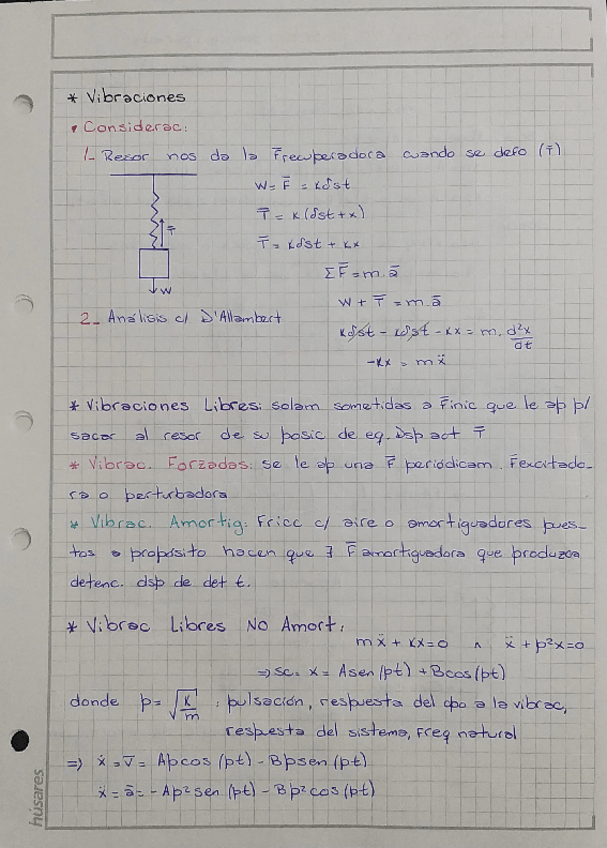 * Vibraciones
• Considerac:
1- Resor nos da la F̄recuperadora cuando se defo (T̄)
W = F̄ = kδst
T̄ = k(δst + x)
T̄ = kδst + kx
T̄
ΣF̄ = m.ā
W
W + T̄ = m.ā
2- Análisis c/ D'Allambert
kδst - kδst - kx = m. d²x/dt
-kx = mẍ
* Vibraciones Libres: solam sometidas a F̄inic que le ap p/
sacar al resor de su posic de eq. Dsp act T̄
* Vibrac. Forzadas: se le ap una F̄ periódicam. F̄excitado-
ra o perturbadora
* Vibrac. Amortig: Fricc c/ aire o amortiguadores pues-
tos a propósito hacen que ∃ F̄ amortiguadora que produzca
detenc. dsp de det t.
* Vibrac Libres No Amort:
mẍ + kx = 0 ∧ ẍ + p²x = 0
⇒ sc. x = Asen(pt) + Bcos(pt)
donde p = √k/m : pulsación, respuesta del cpo a la vibrac,
respuesta del sistema, Freq natural
⇒ ẋ = v̄ = Apcos(pt) - Bpsen(pt)
ẍ = ā = -Ap²sen(pt) - Bp²cos(pt)
húsares